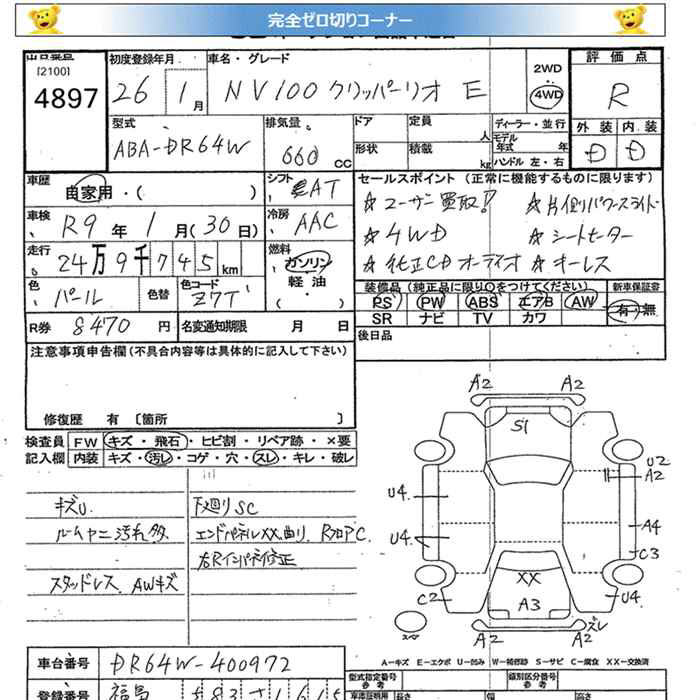 完全ゼロ切りコーナー
出品番号 初度登録年月 車名・グレード 2WD 評価点
[2100]
4897 26 1月 NV100 クリッパーリオ E 4WD R
型式 排気量 ドア 定員 人 ディーラー・並行 外装 内装
ABA-DR64W 660 CC 形状 積載 kg モデル年式 年 ハンドル 左・右 D D
車歴 自家用・( ) シフト AT セールスポイント(正常に機能するものに限ります)
☆ユーザー買取! ☆片側パワースライド
車検 R9年 1月(30日) 冷房 AAC
☆4WD ☆シートヒーター
走行 24万9千745km 燃料 ガソリン・軽油・( )
☆純正CDオーディオ ☆キーレス
色 パール 色替 色コード Z7T
装備品(純正品に限り○をつけてください) 新車保証書
PS PW ABS エアB AW 有・無
SR ナビ TV カワ
R券 8470円 名変通知期限 月 日
後日品
注意事項申告欄(不具合内容等は具体的に記入して下さい)
修復歴 有 〔箇所 〕
検査員記入欄 FW キズ・飛石・ヒビ割・リペア跡・×要
内装 キズ・汚し・コゲ・穴・スレ・キレ・破レ
キズU 下廻りSC
ルームヤニ汚れ多 エンドパネルXX曲り RフロアC
右Rインパネ修正
スタッドレス AWキズ
A2 A2
S1
U2
A2
U4
A4
U4
C3
XX
C2 A3 U4
スペア A2 A2 ズレ
A-キズ E-エクボ U-凹み W-補修跡 S-サビ C-腐食 XX-交換済
車台番号 DR64W-400972 型式指定番号 類別区分番号
登録番号 福島 583